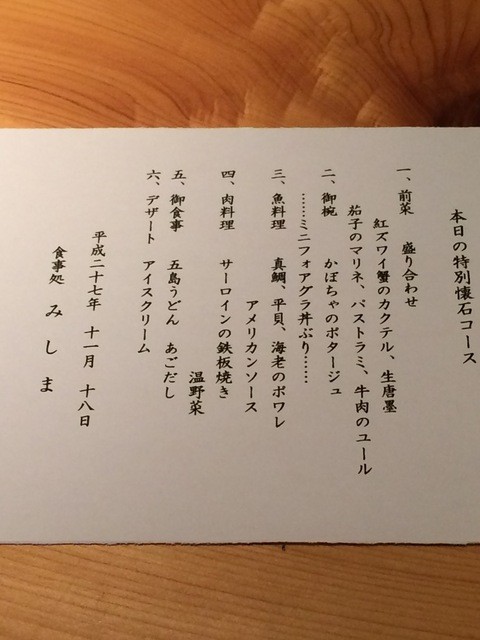 本日の特別懐石コース
一、前菜 盛り合わせ
紅ズワイ蟹のカクテル、生唐墨
茄子のマリネ、パストラミ、牛肉のユール
二、御椀 かぼちゃのポタージュ
……ミニフォアグラ丼ぶり……
三、魚料理 真鯛、平貝、海老のポワレ
アメリカンソース
四、肉料理 サーロインの鉄板焼き
温野菜
五、御食事 五島うどん あごだし
六、デザート アイスクリーム
平成二十七年 十一月 十八日
食事処 みしま